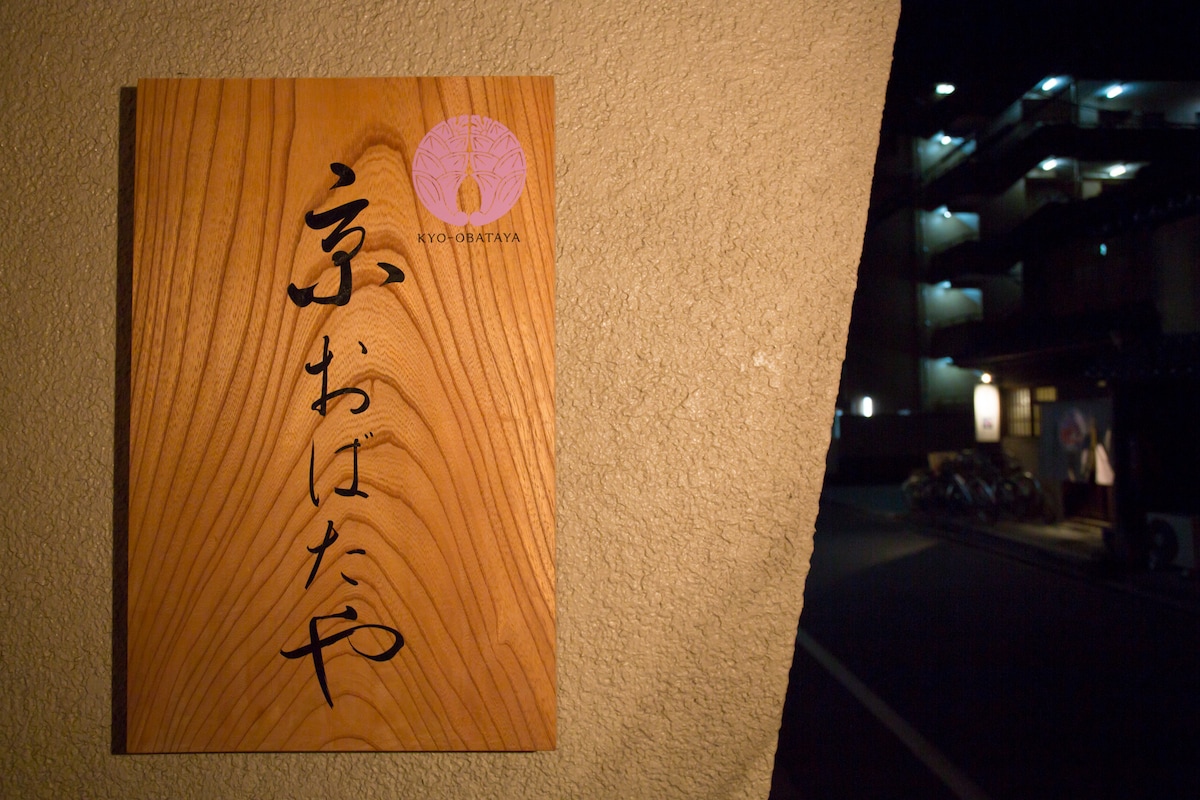 京おばたや
KYO-OBATAYA